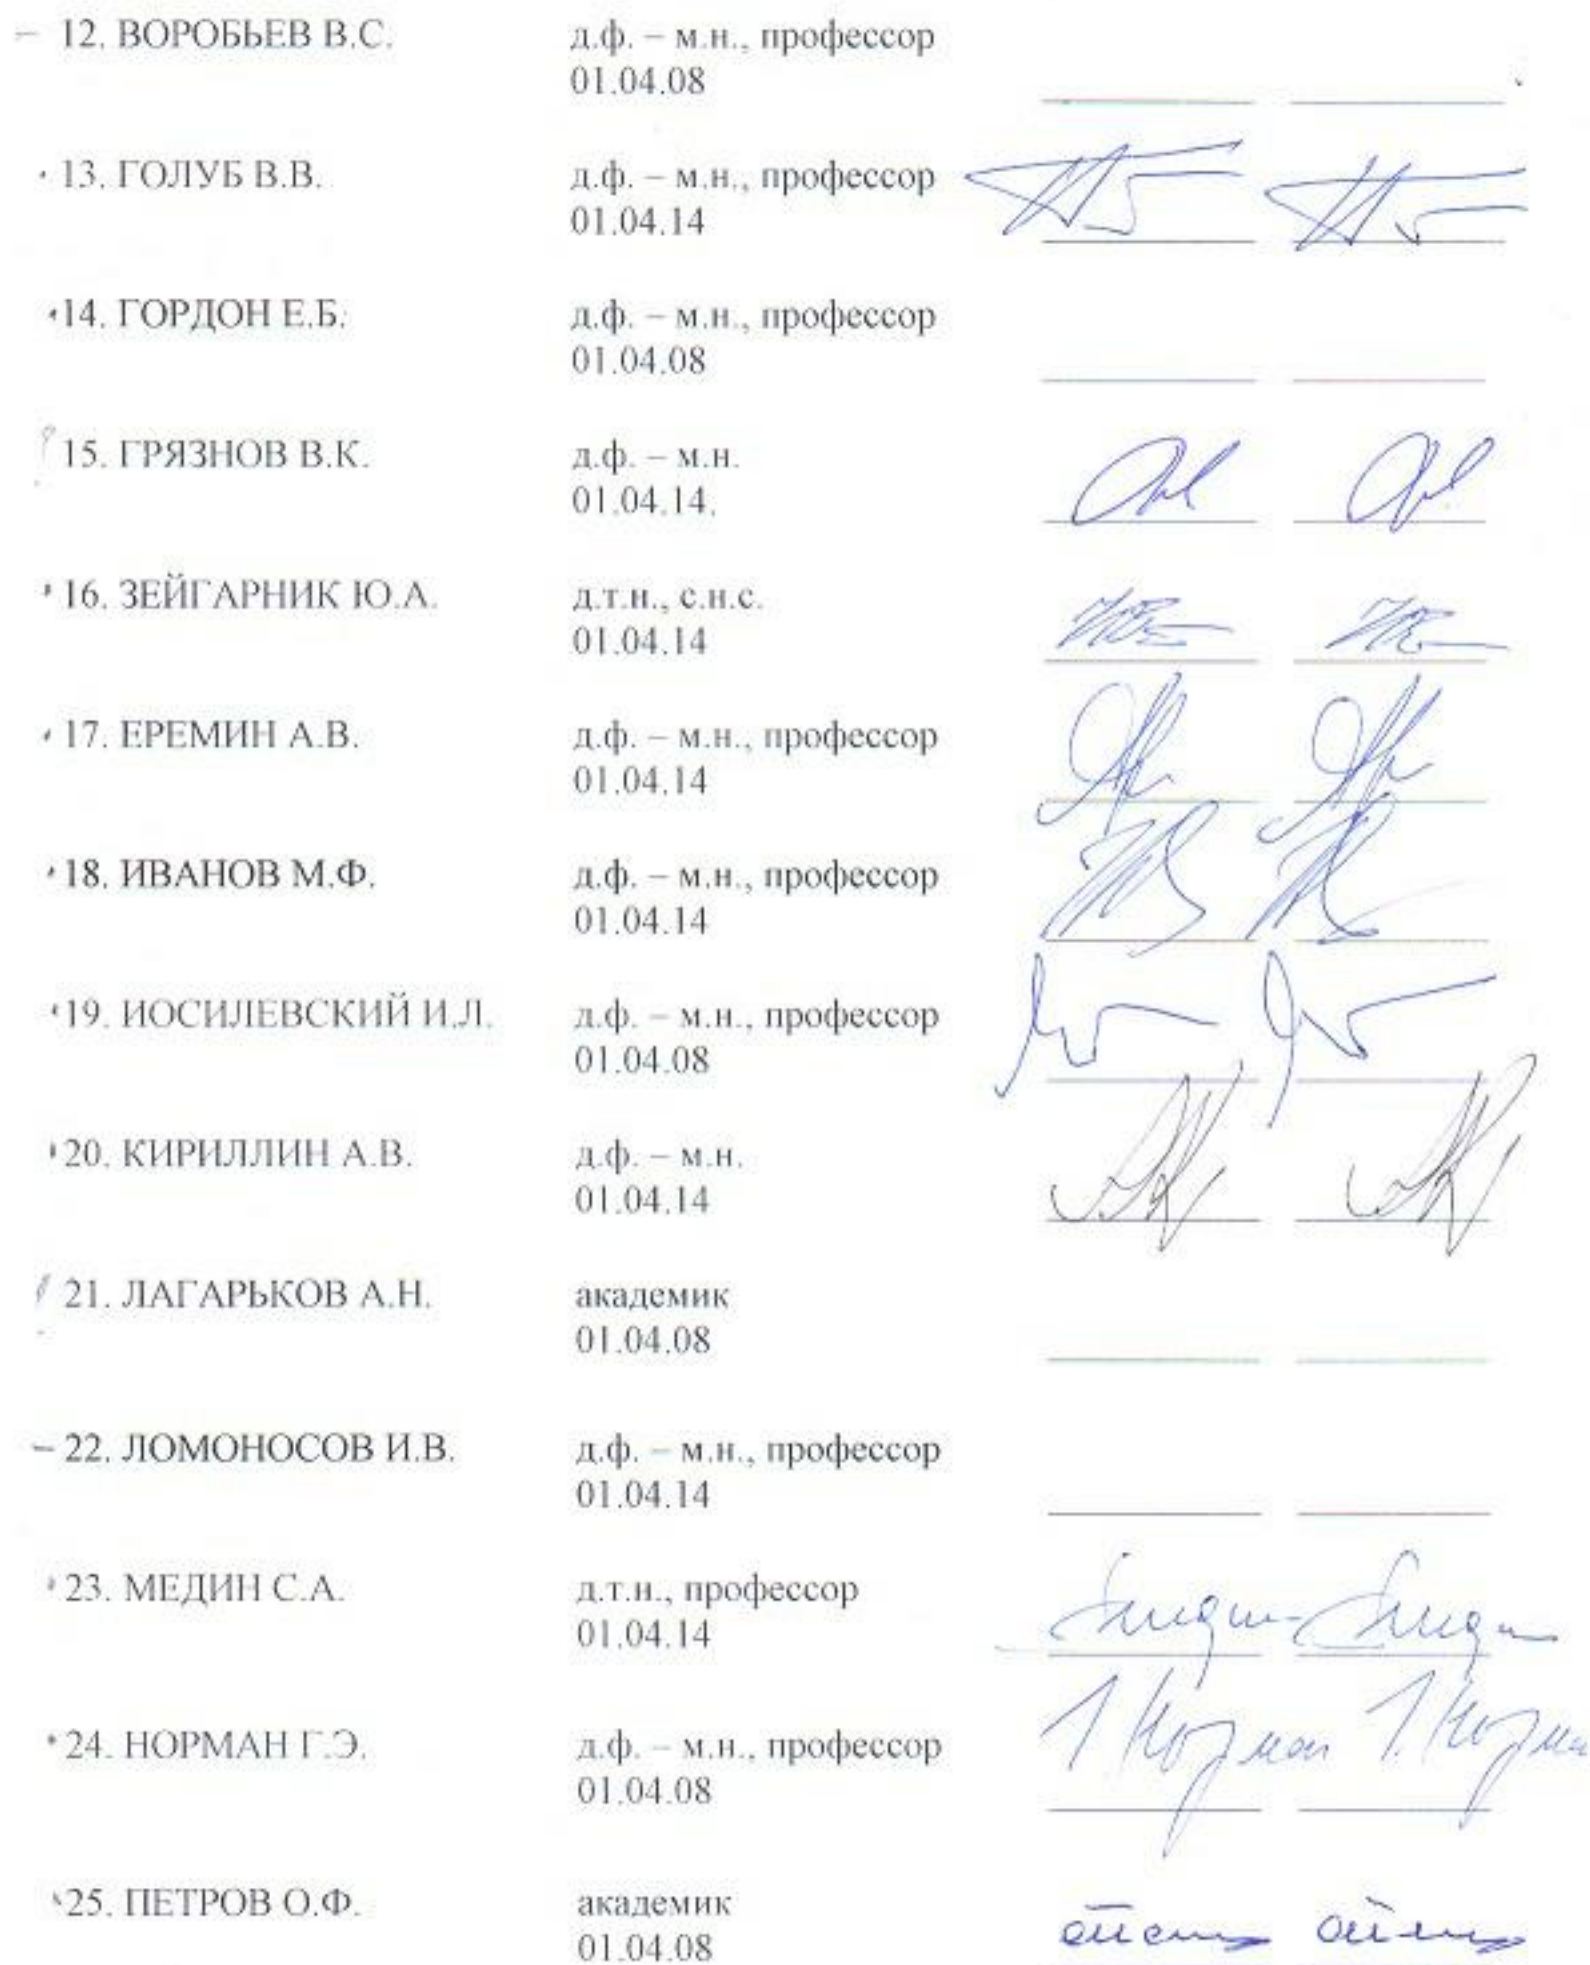 12. ВОРОБЬЕВ В.С. д.ф. – м.н., профессор
01.04.08
13. ГОЛУБ В.В. д.ф. – м.н., профессор
01.04.14
14. ГОРДОН Е.Б. д.ф. – м.н., профессор
01.04.08
15. ГРЯЗНОВ В.К. д.ф. – м.н.
01.04.14.
16. ЗЕЙГАРНИК Ю.А. д.т.н., с.н.с.
01.04.14
17. ЕРЕМИН А.В. д.ф. – м.н., профессор
01.04.14
18. ИВАНОВ М.Ф. д.ф. – м.н., профессор
01.04.14
19. ИОСИЛЕВСКИЙ И.Л. д.ф. – м.н., профессор
01.04.08
20. КИРИЛЛИН А.В. д.ф. – м.н.
01.04.14
21. ЛАГАРЬКОВ А.Н. академик
01.04.08
22. ЛОМОНОСОВ И.В. д.ф. – м.н., профессор
01.04.14
23. МЕДИН С.А. д.т.н., профессор
01.04.14
24. НОРМАН Г.Э. д.ф. – м.н., профессор
01.04.08
25. ПЕТРОВ О.Ф. академик
01.04.08